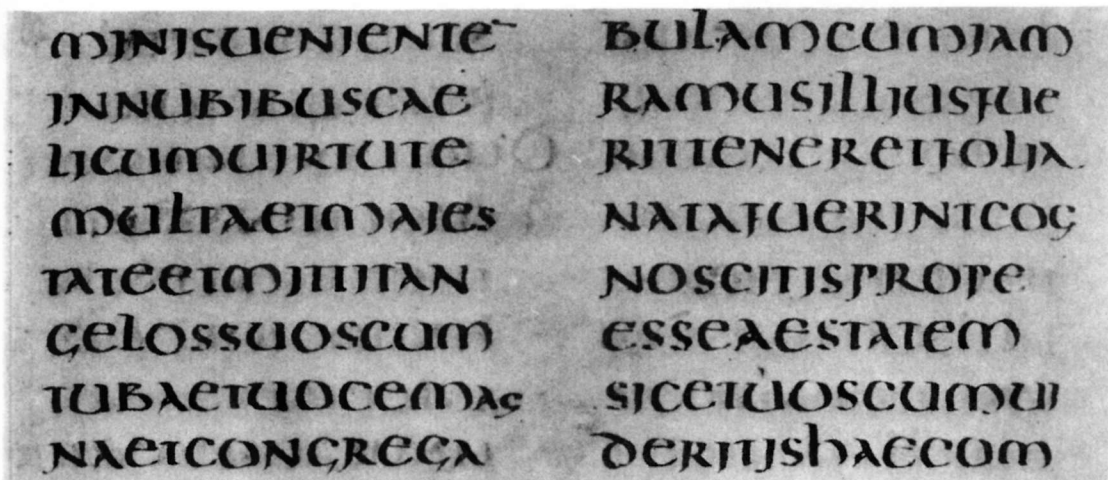 MINISUENIENTE¯
INNUBIBUSCAE
LICUMUIRTUTE
MULTAETMAIES
TATEETMITTITAN
GELOSSUOSCUM
TUBAETUOCEMAG
NAETCONGREGA
BULAMCUMIAM
RAMUSILLIUSFUE
RITTENERETFOLIA
NATAFUERINTCOG
NOSCITISPROPE
ESSEAESTATEM
SICETUOSCUMUI
DERITISHAECOM